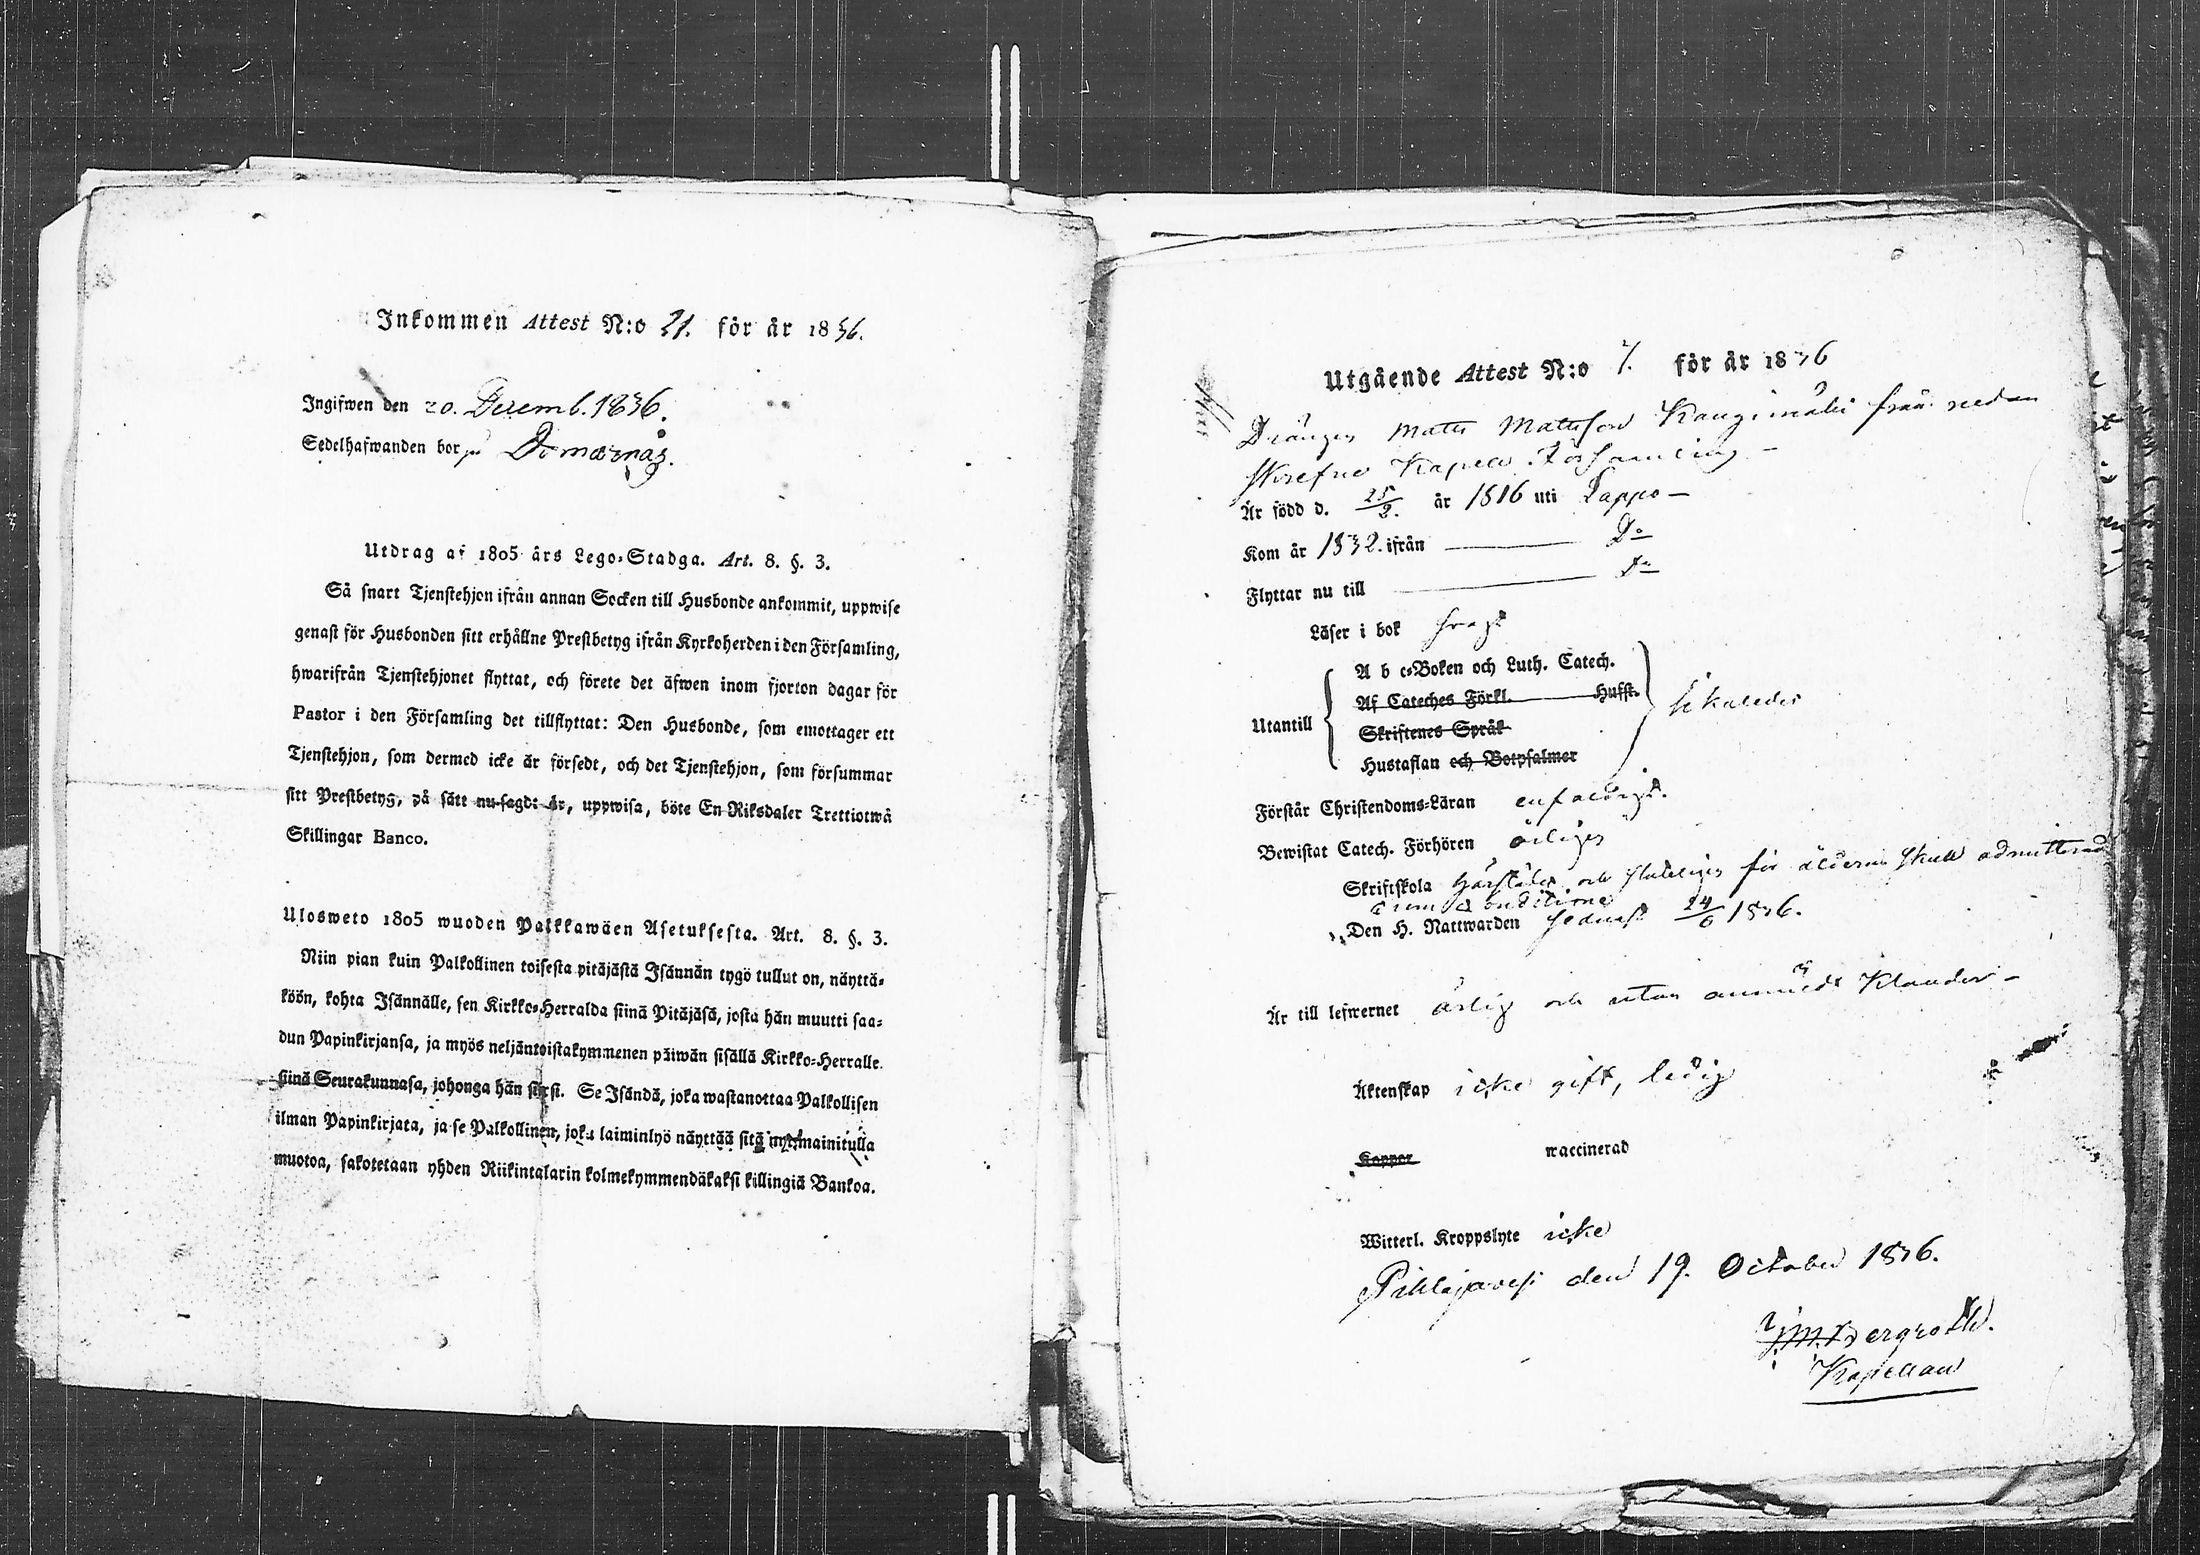 Inkommen Attest N:o 21. för år 1836.
Ingifwen den 20. Decemb. 1836.
Sedelhafwanden bor på Domarnäs.
Utdrag af 1805 års Lego-Stadga. Art. 8. §. 3.
Så snart Tjenstehjon ifrån annan Socken till Husbonde ankommit, uppwise
genast för Husbonden sitt erhållne Prestbetyg ifrån Kyrkoherden i den Församling,
hwarifrån Tjenstehjonet flyttat, och förete det äfwen inom fjorton dagar för
Pastor i den Församling det tillflyttat: Den Husbonde, som emottager ett
Tjenstehjon, som dermed icke är försedt, och det Tjenstehjon, som försummar
sitt Prestbetyg, på sätt nu sagdt är, uppwisa, böte En Riksdaler Trettiotwå
Skillingar Banco.
Ulosweto 1805 wuoden Palkkawäen Asetuksesta. Art. 8. §. 3.
Niin pian kuin Palkollinen toisesta pitäjästä Isännän tygö tullut on, näyttä-
köön, kohta Isännälle, sen Kirkko-Herralda siinä Pitäjäsä, josta hän muutti saa-
dun Papinkirjansa, ja myös neljäntoistakymmenen päiwän sisällä Kirkko-Herralle
siinä Seurakunnasa, johonga hän siirsi. Se Isändä, joka wastanottaa Palkollisen
ilman Papinkirjata, ja se Palkollinen, joka laiminlyö näyttää sitä nytmainitulla
muotoa, sakotetaan yhden Riikintalarin kolmekymmendäkaksi killingiä Bankoa.
Utgående Attest N:o 7. för år 1836
Drängen Matts Mattsson Kangimäki från nedan
skrefne Kapell Församling —
Är född d. 25/2. år 1816 uti Lappo —
Kom år 1832. ifrån — Do
Flyttar nu till — Do
Läser i bok svagt
A b c-Boken och Luth. Catech.
Af Cateches Förkl. Hufst.
Utantill
Skriftenes Språk
Hustaflan och Botpsalmer
Förstår Christendoms-Läran enfaldigt.
Bewistat Catech. Förhören årligen
Skriftskola härstädes och för ålderns skull admitterad
cum conditione
Den H. Nattwarden sednast 24/6 1836.
Är till lefwernet ärlig och utan anmärkt klander —
Äktenskap icke gift, ledig
Koppor waccinerad
Witterl. Kroppslyte icke
Pihlajavesi den 19. October 1836.
J.M. Bergroth.
Kapellan